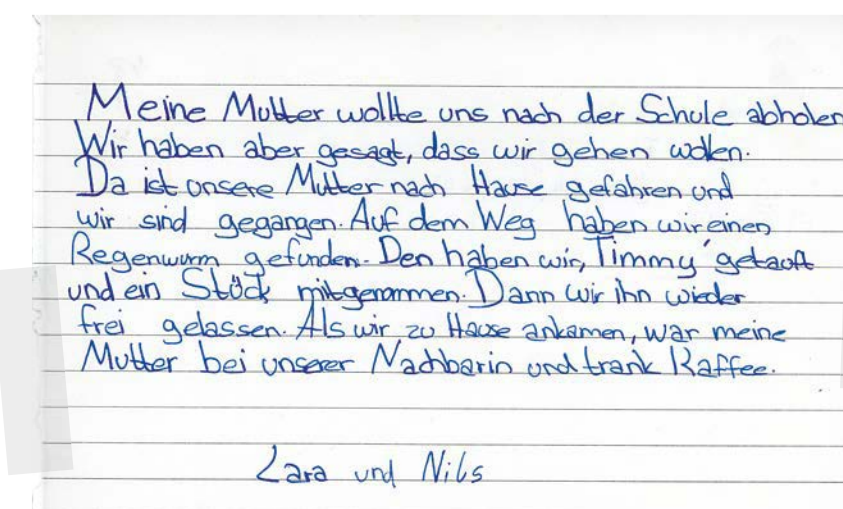 Meine Mutter wollte uns nach der Schule abholen
Wir haben aber gesagt, dass wir gehen wollen.
Da ist unsere Mutter nach Hause gefahren und
wir sind gegangen. Auf dem Weg haben wir einen
Regenwurm gefunden. Den haben wir, Timmy' getauft
und ein Stück mitgenommen. Dann wir ihn wieder
frei gelassen. Als wir zu Hause ankamen, war meine
Mutter bei unserer Nachbarin und trank Kaffee.
Lara und Nils